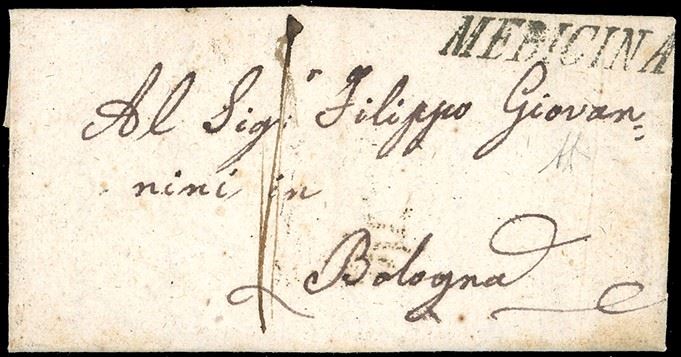 MEDICINA
Al Sig.r Filippo Giovan=
nini in
Bologna